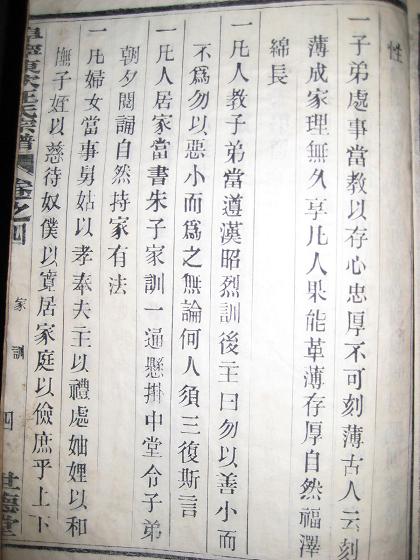 性
一子弟處事當教以存心忠厚不可刻薄古人云刻
薄成家理無久享凡人果能革薄存厚自然福澤
綿長
一凡人教子弟當遵漢昭烈訓後主曰勿以善小而
不為勿以惡小而爲之無論何人須三復斯言
一凡人居家當書朱子家訓一遍懸掛中堂令子弟
朝夕閱誦自然持家有法
一凡婦女當事舅姑以孝奉夫主以禮處妯娌以和
撫子姪以慈待奴僕以寬居家庭以儉庶乎上下
氏宗譜 卷之四 家訓 四 世德堂